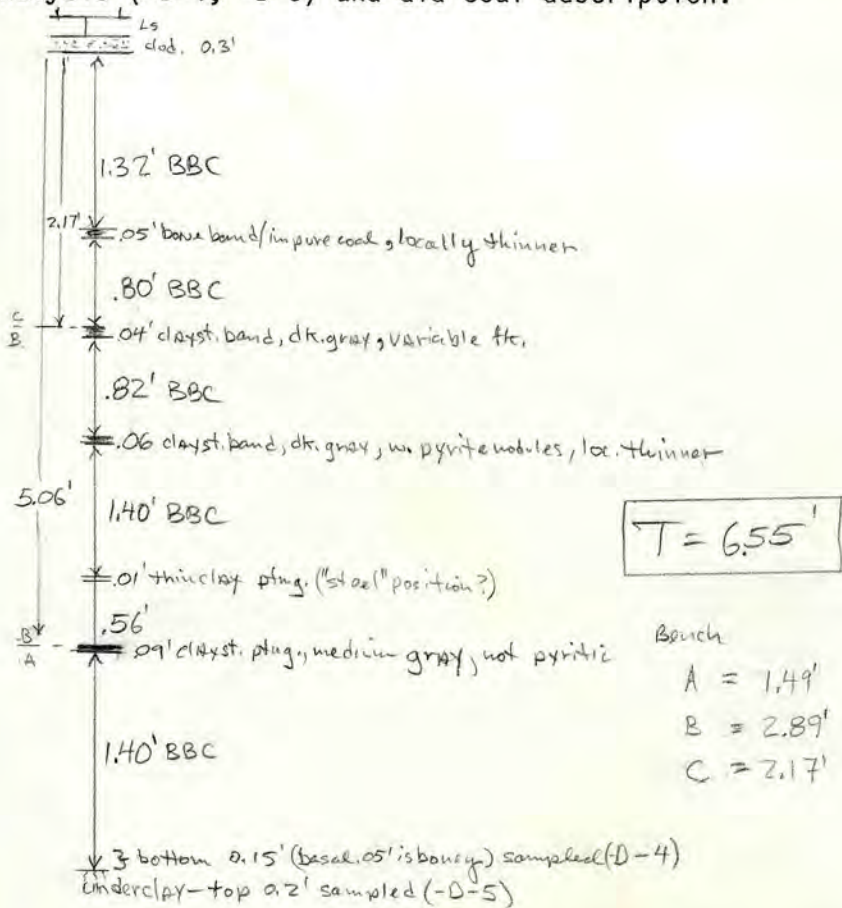 and did coal description.
Ls
clod. 0.3'
1.32' BBC
2.17'
.05' bone band/impure coal, locally thinner
.80' BBC
C
B
.04' clayst. band, dk. gray, variable tk.
.82' BBC
.06 clayst. band, dk. gray, w. pyrite nodules, loc. thinner
5.06'
1.40' BBC
T = 6.55'
.01' thin clay ptng. ("steel" position?)
.56'
B
A
.09' clayst. ptng., medium gray, not pyritic
Bench
A = 1.49'
B = 2.89'
C = 2.17'
1.40' BBC
} bottom 0.15' (basal .05' is boney) sampled (-D-4)
Underclay - top 0.2' sampled (-D-5)